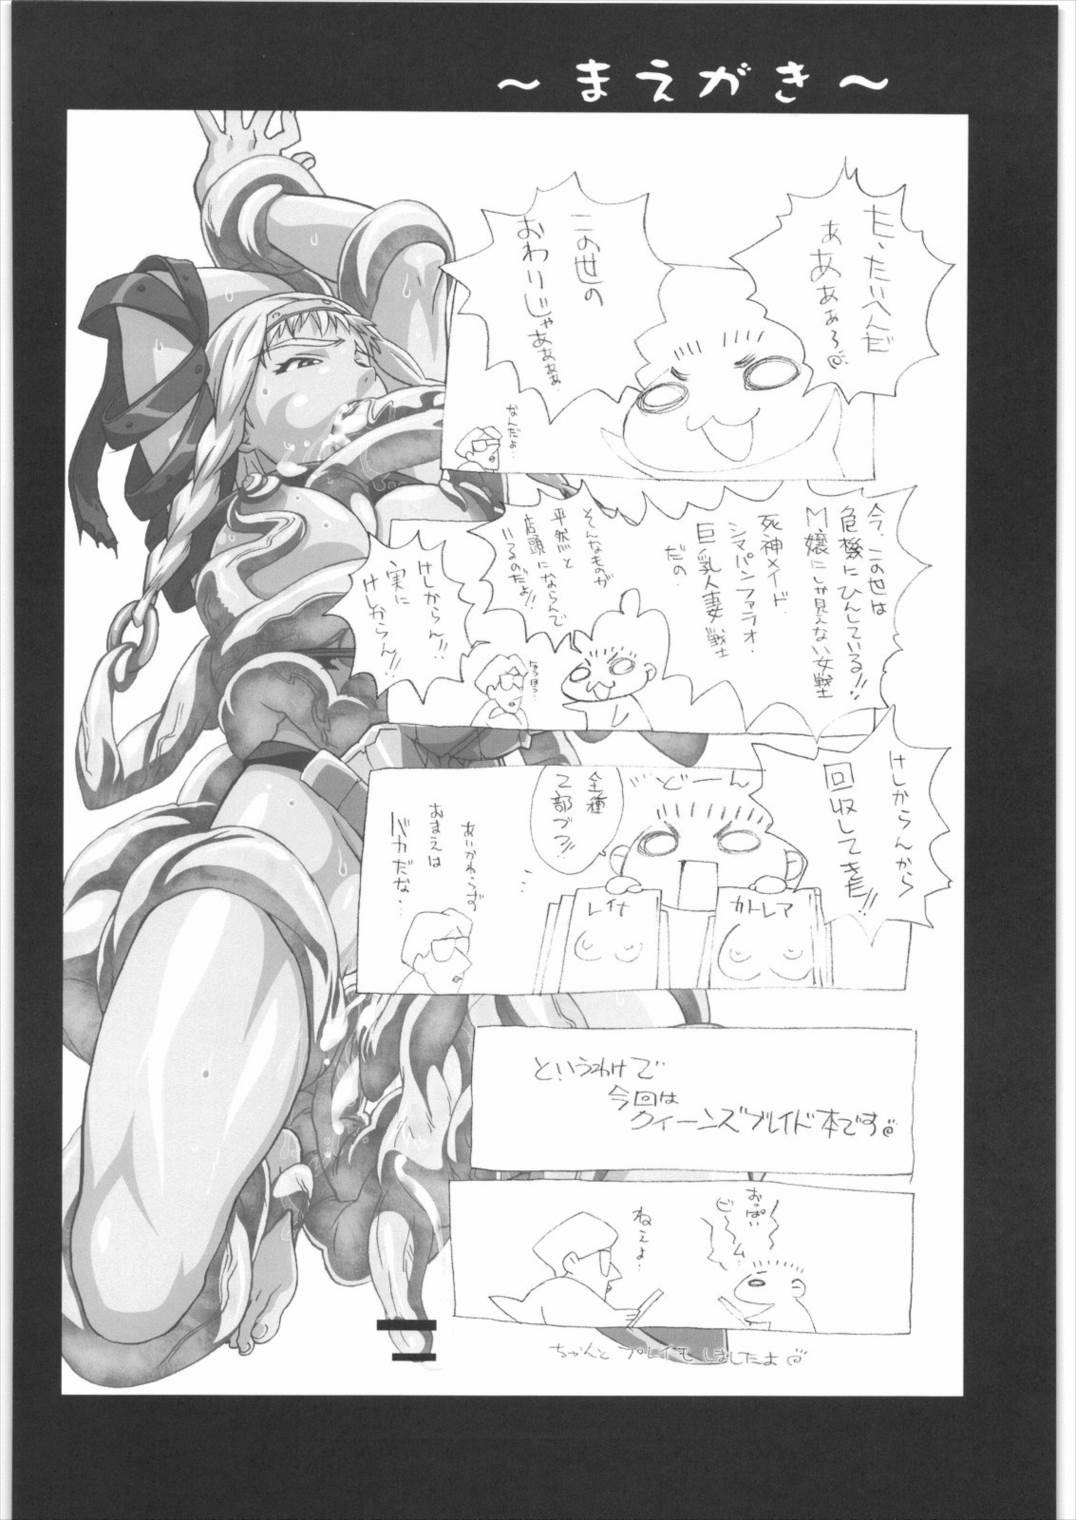 ～まえがき～
た、たいへんだ
ああああ～
この世の
おわりじゃあぁぁぁ
なんだよ…
今、この世は
危機にひんしている!!
M嬢にしか見えない女戦士
死神メイド、
シマパンファラオ・
巨乳人妻戦士
だの
そんなものが
平然と
店頭にならんで
いるのだよ!!
なるほど…
けしからん!!
実に
けしからん!!
けしからんから
回収してきた!!
どーん
全種
2部づつ!!
レイナ
カトレア
あいかわらず
おまえは
バカだな…
というわけで
今回は
クイーンズブレイド本です
おっぱい
ビーム
ねえよ…
ちゃんとプレイもしましたよ